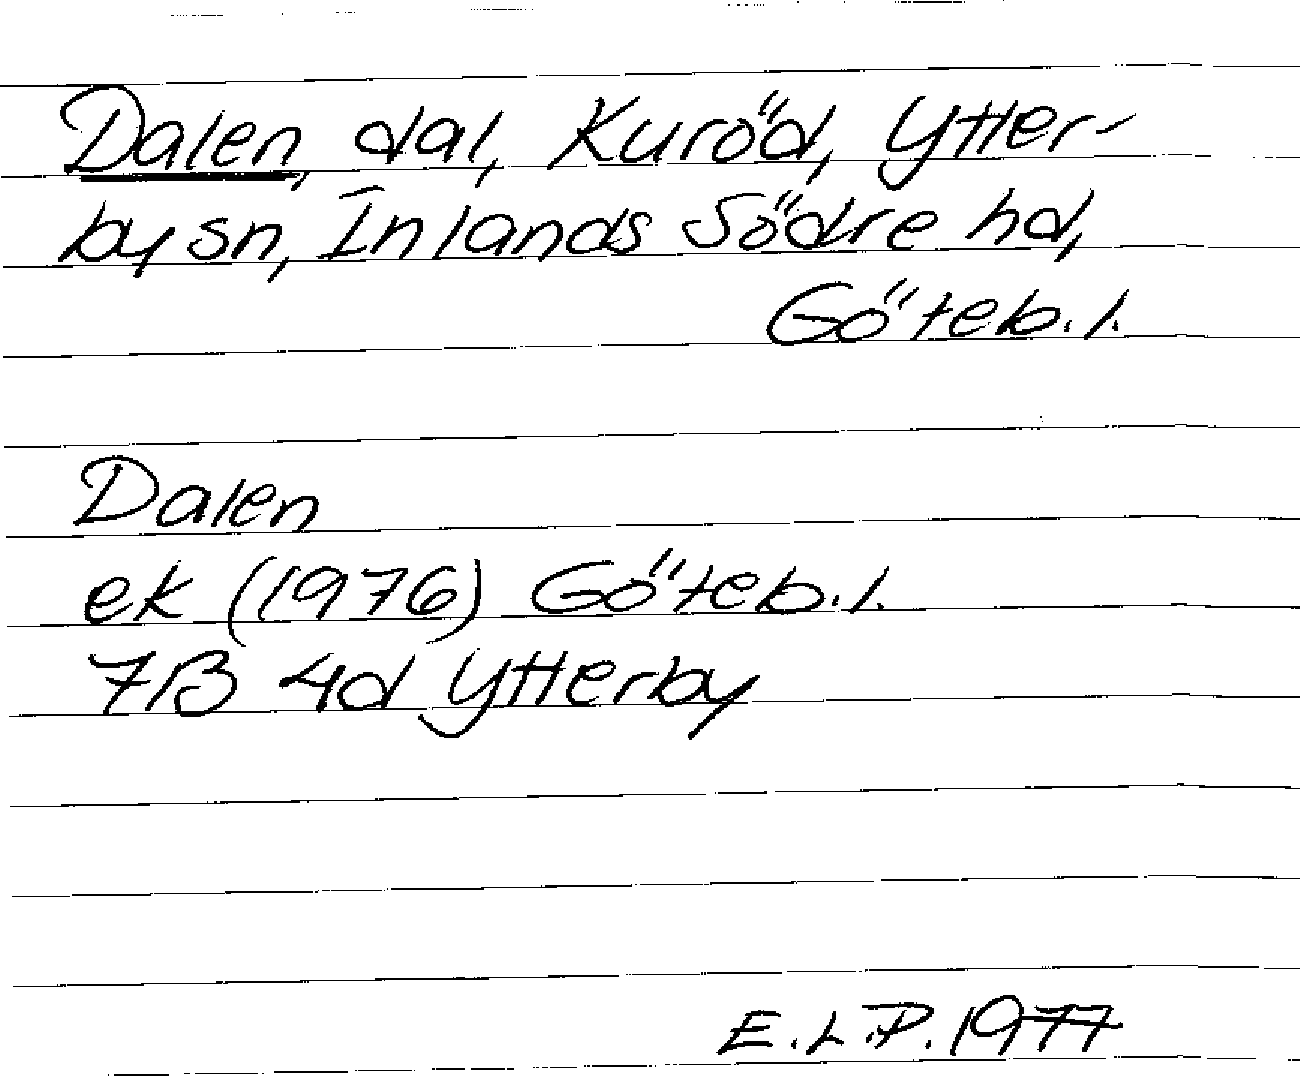 Dalen, dal, Kuröd, Ytter-
by sn, Inlands Södre hd,
Göteb.l.
Dalen
ek (1976) Göteb.l.
7B 4d Ytterby
E.L.P. 1977